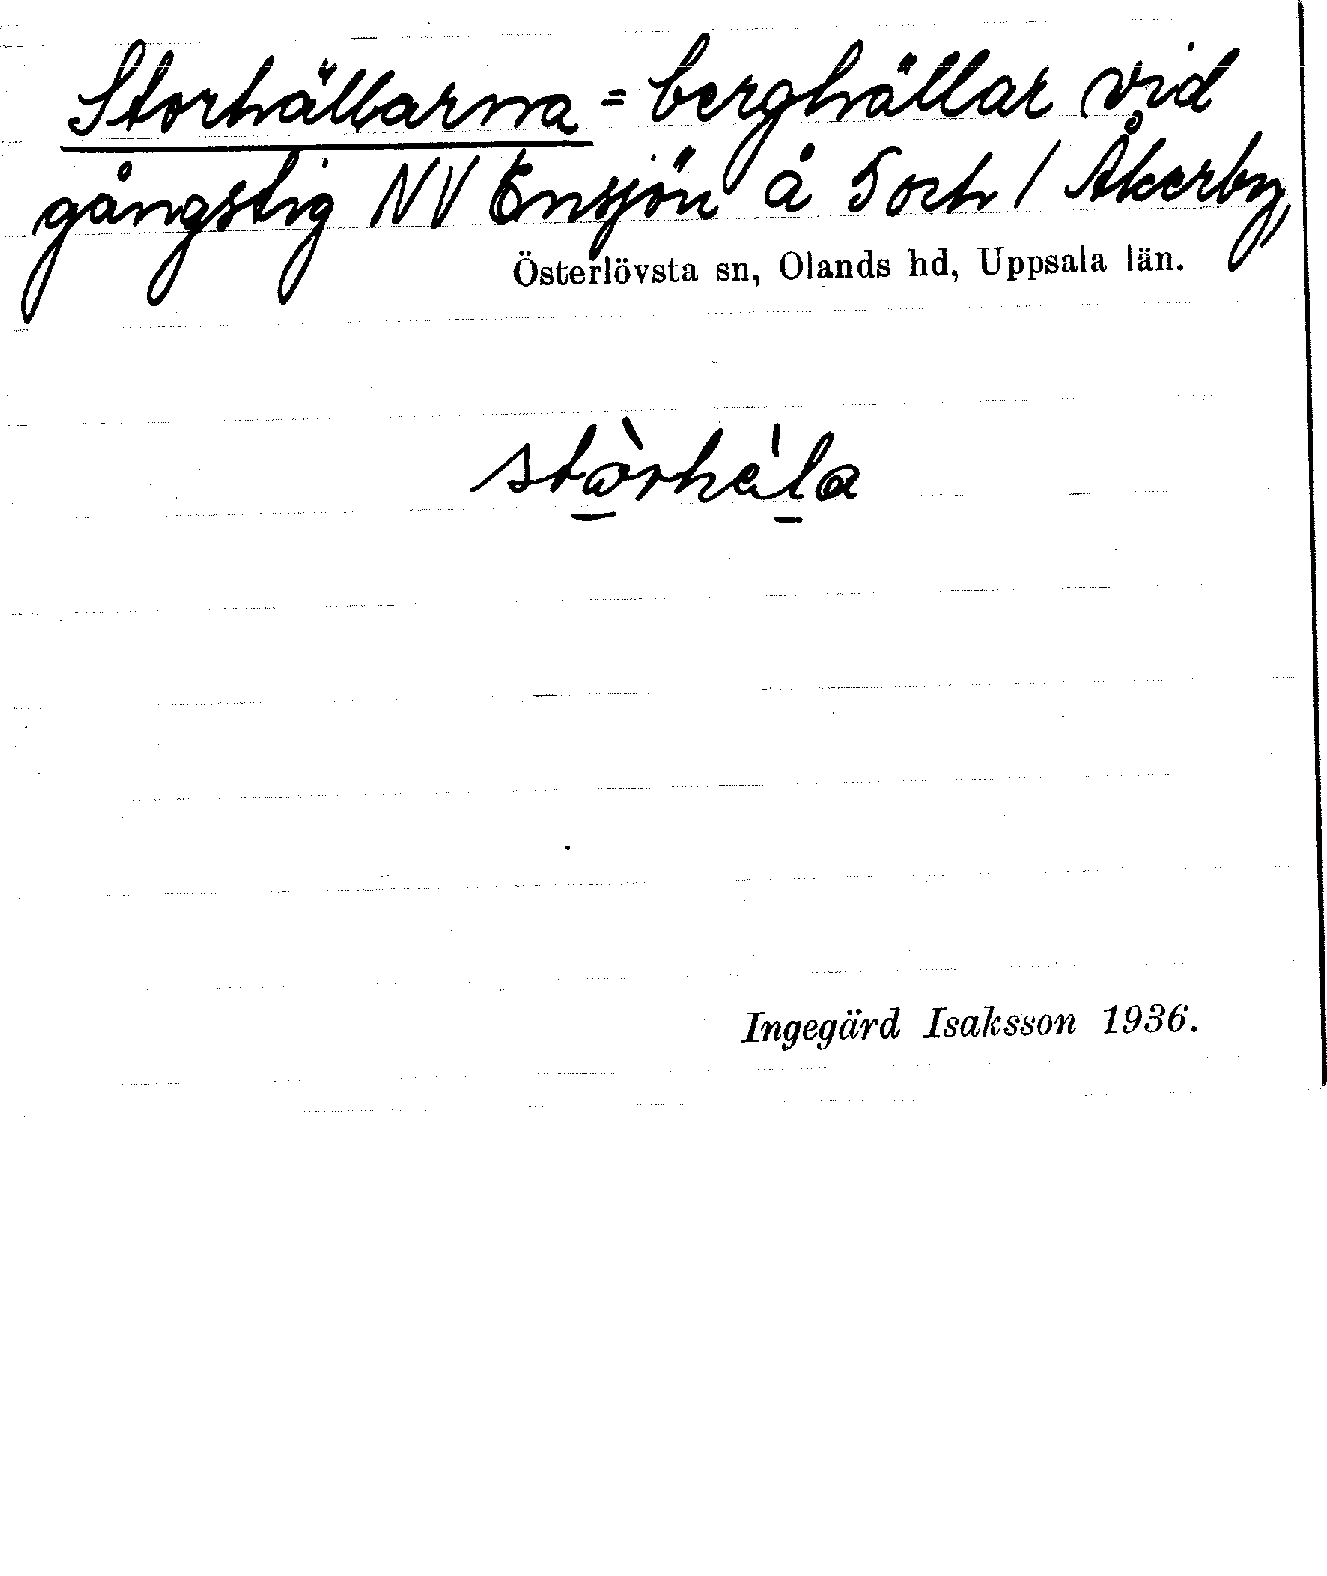 Storhällarna = berghällar vid
gångstig NV Ensjön å 5 och 1 Åkerby,
Österlövsta sn, Olands hd, Uppsala län.
stòrhɛ̀la
Ingegärd Isaksson 1936.